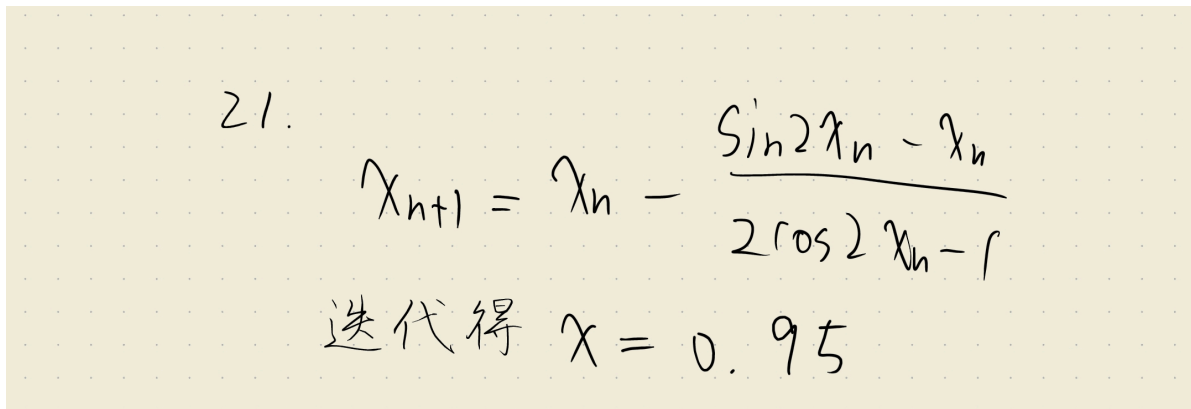 21.
xₙ₊₁ = xₙ - (sin2xₙ - xₙ) / (2cos2xₙ - 1)
迭代得 x = 0.95